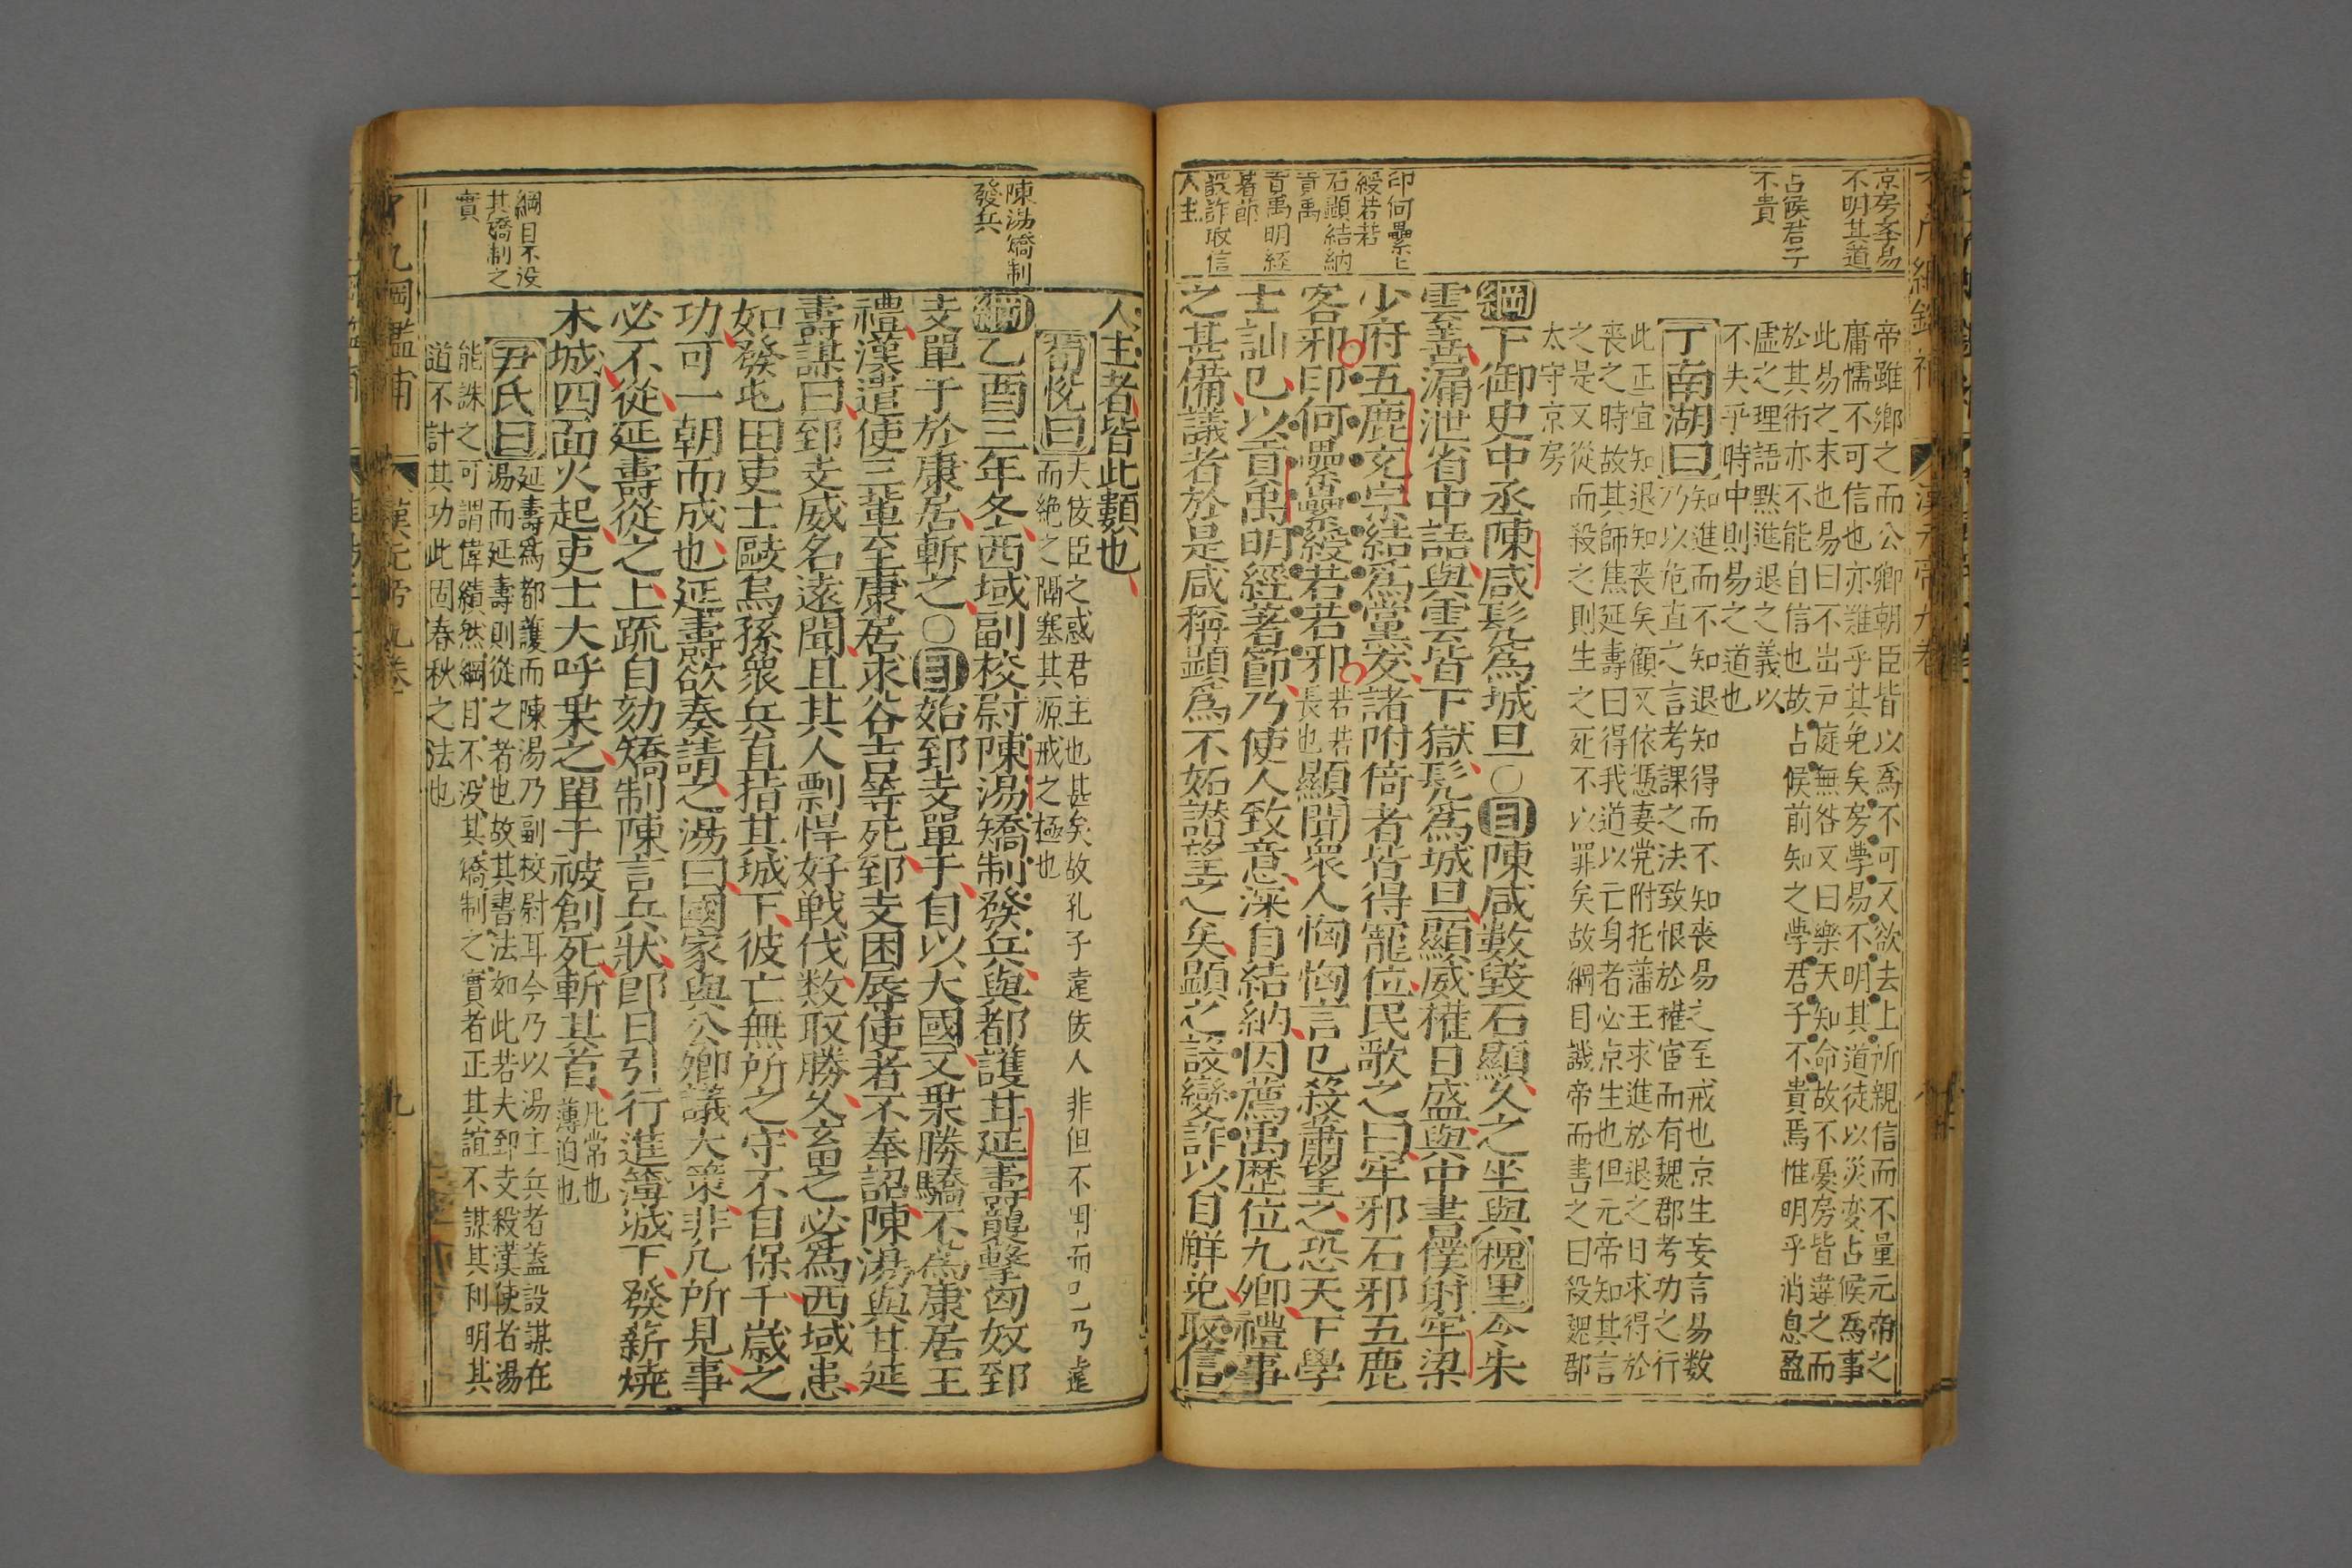 京房李易
不明其道
占侯君子
不貴
印何纍上
綬若若
石顯結納
貢禹
貢禹明経
著節
設詐取信
人主
帝雖鄉之而公卿朝臣皆以爲不可又欲去上所親信而不量元帝之
庸懦不可信也亦難乎其免矣房學易不明其道徒以災変占候爲事
此易之末也易曰不出戸庭無咎又曰樂天知命故不憂房皆違之而
於其術亦不能自信也故占候前知之學君子不貴焉惟明乎消息盈
虛之理語默進退之義以
不失乎時中則易之道也
丁南湖曰
知進而不知退知得而不知喪易之至戒也京生妄言易数
乃以危直之言考課之法致恨於權宦而有魏郡考功之行
此正宜知退知喪矣顧又依憑妻党附托藩王求進於退之日求得於
喪之時故其師焦延壽曰得我道以亡身者必京生也但元帝知其言
之是又從而殺之則生之死不以罪矣故綱目譏帝而書之曰殺魏郡
太守京房
綱下御史中丞陳咸髠爲城旦○目陳咸數毀石顯久之坐與槐里令朱
雲善漏泄省中語與雲皆下獄髠爲城旦顯威權日盛與中書僕射牢梁
少府五鹿充宗結爲黨友諸附倚者皆得寵位民歌之曰牢邪石邪五鹿
客邪印何纍纍綬若若邪若若
長也顯聞衆人恟恟言已殺蕭望之恐天下學
士訕已以貢禹明經著節乃使人致意深自結納因薦禹歷位九卿禮事
之甚備議者於是咸稱顯爲不妬譖望之矣顯之設變詐以自解免取信
陳湯矯制
發兵
綱目不没
其矯制之
實
人主者皆此類也
荀悅曰
夫佞臣之惑君主也甚矣故孔子遠佞人非但不用而已乃遠
而絶之隔塞其源戒之極也
綱乙酉三年冬西域副校尉陳湯矯制發兵與都護甘延壽襲擊匈奴郅
支單于於康居斬之○目始郅支單于自以大國又乗勝驕不爲康居王
禮漢遣使三輩至康居求谷吉等死郅支困辱使者不奉詔陳湯與甘延
壽謀曰郅支威名遠聞且其人剽悍好戦伐数取勝久畜之必爲西域患
如發屯田吏士敺烏孫衆兵直指其城下彼亡無所之守不自保千歳之
功可一朝而成也延壽欲奏請之湯曰國家與公卿議大策非凡所見事
必不從延壽從之上疏自劾矯制陳言兵狀即日引行進簿城下發薪燒
木城四面火起吏士大呼乗之單于被創死斬其首凡常也
薄迫也
尹氏曰
延壽爲都護而陳湯乃副校尉耳今乃以湯主兵者蓋設謀在
湯而延壽則從之者也故其書法如此若夫郅支殺漢使者湯
能誅之可謂偉績然綱目不没其矯制之實者正其誼不謀其利明其
道不計其功此固春秋之法也